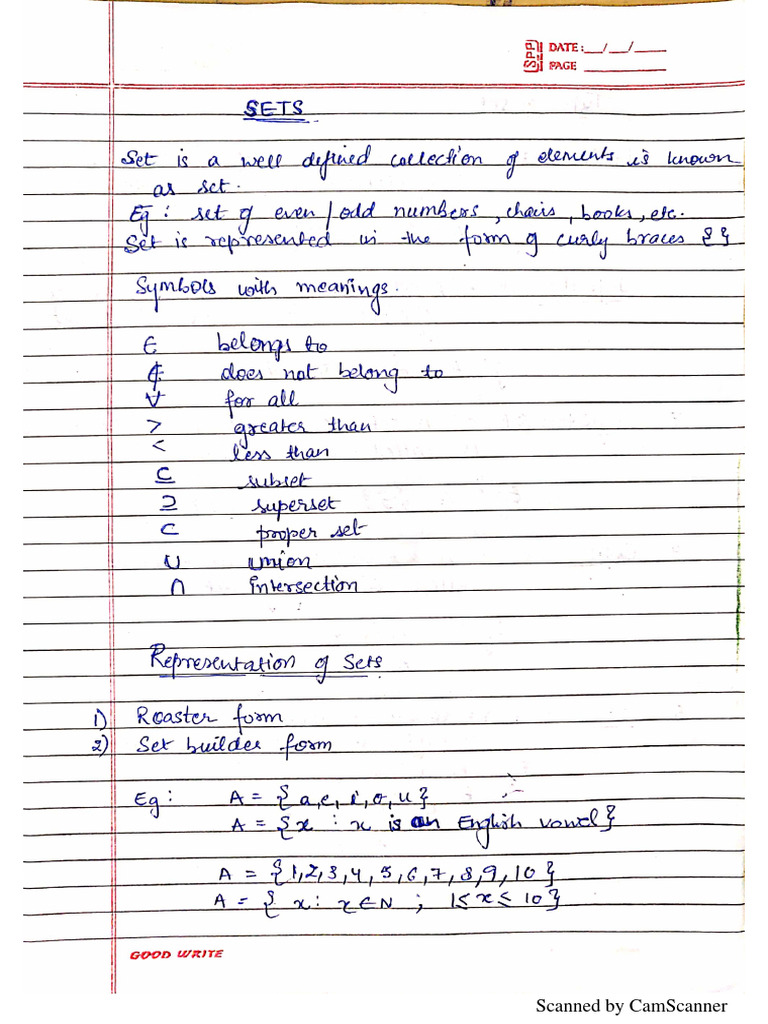 SPP DATE: __/__/____
PAGE ________
SETS
Set is a well defined collection of elements is known
as set.
Eg: set of even/odd numbers, chairs, books, etc.
Set is represented in the form of curly braces { }
Symbols with meanings.
∈ belongs to
∉ does not belong to
∀ for all
> greater than
< less than
⊆ subset
⊇ superset
⊂ proper set
∪ union
∩ intersection
Representation of Sets
1) Roaster form
2) Set builder form
Eg: A = {a, e, i, o, u}
A = {x : x is an English vowel}
A = {1, 2, 3, 4, 5, 6, 7, 8, 9, 10}
A = { x : x ∈ N ; 1 ≤ x ≤ 10}
GOOD WRITE
Scanned by CamScanner